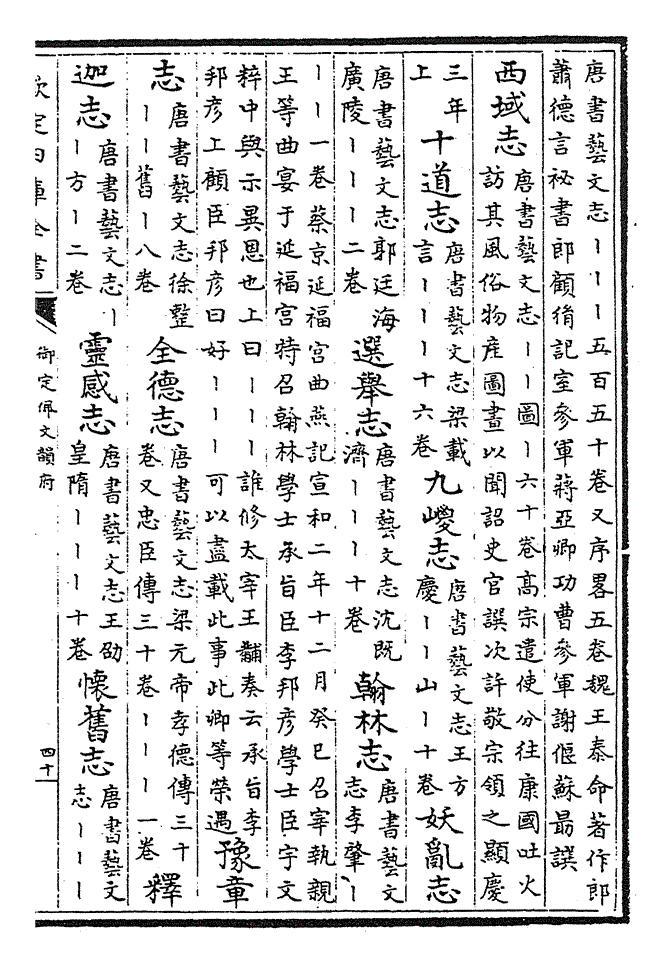 唐書藝文志丨丨丨五百五十卷又序畧五卷魏王泰命著作郎
蕭德言祕書郎顧𦙍記室參軍蔣亞卿功曹參軍謝偃蘇朂譔
西域志 唐書藝文志丨丨圖丨六十卷髙宗遣使分往康國吐火
訪其風俗物産圖畫以聞詔史官譔次許敬宗領之顯慶
三年
上
十道志 唐書藝文志梁載
言丨丨丨十六卷
九嵕志 唐書藝文志王方
慶丨丨山丨十卷
妖亂志
唐書藝文志郭廷海
廣陵丨丨丨二卷
選舉志 唐書藝文志沈既
濟丨丨丨十卷
翰林志 唐書藝文
志李肇丨
丨丨一卷蔡京延福宫曲燕記宣和二年十二月癸巳召宰執親
王等曲宴于延福宫特召翰林學士承旨臣李邦彦學士臣宇文
粹中與示異恩也上曰丨丨丨誰修太宰王黼奏云承旨李
邦彦上顧臣邦彦曰好丨丨丨可以盡載此事此卿等榮遇
豫章
志 唐書藝文志徐整
丨丨舊丨八卷
全德志 唐書藝文志梁元帝孝德傳三十
卷又忠臣傳三十卷丨丨丨一卷
釋
迦志 唐書藝文志丨
丨方丨二卷
靈感志 唐書藝文志王劭
皇隋丨丨丨十卷
懷舊志 唐書藝文
志丨丨丨
欽定四庫全書
御定佩文韻府
四十